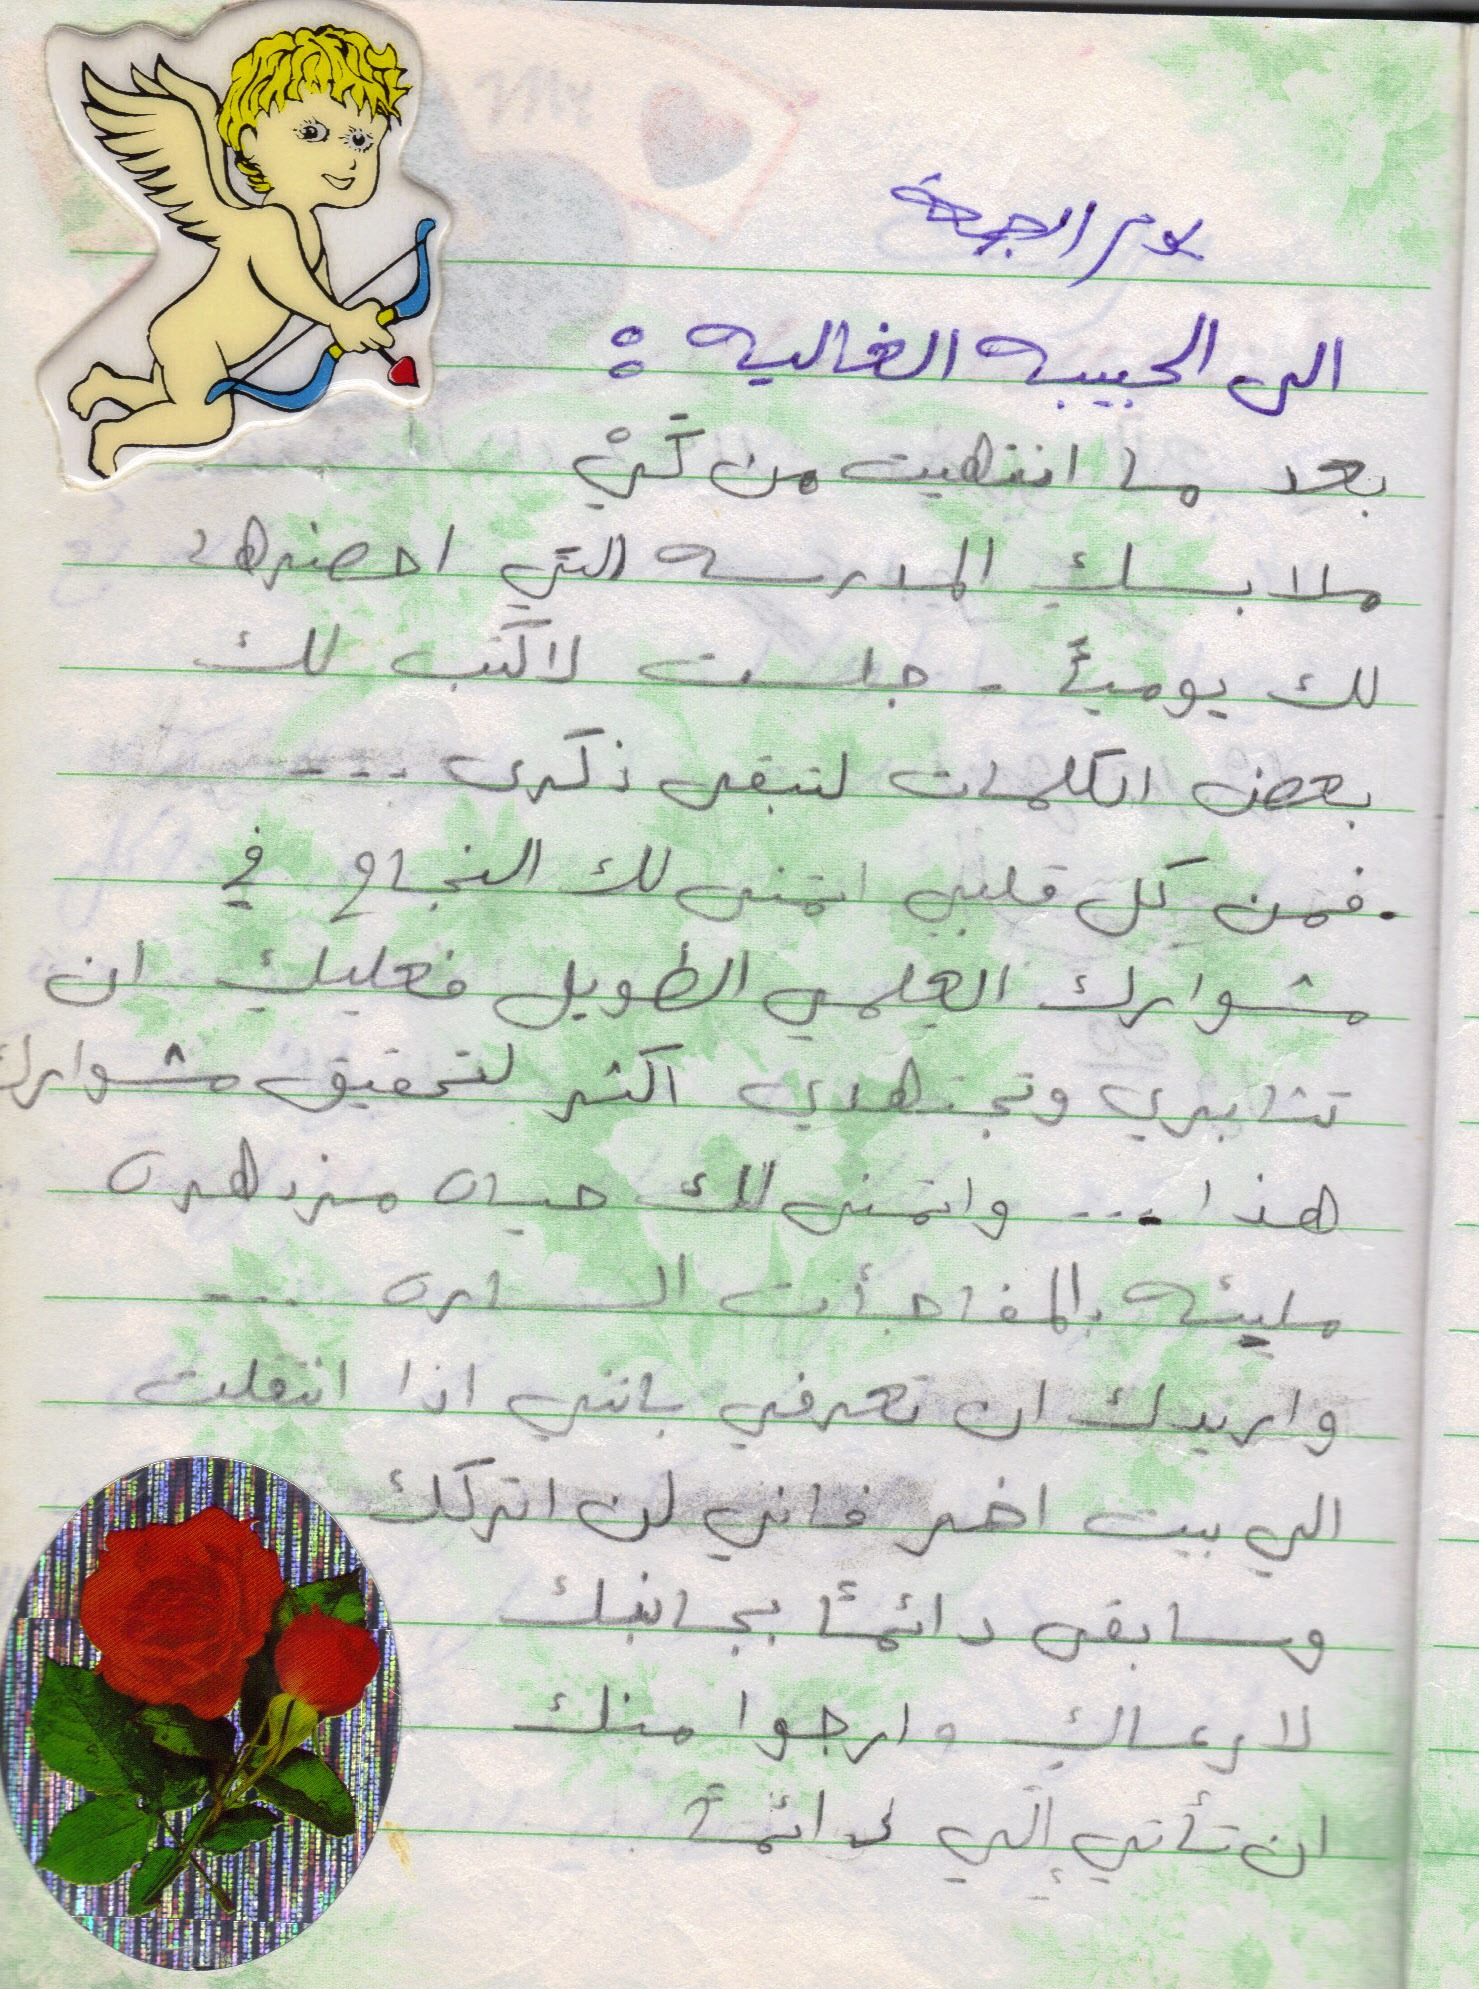 يوم الجمعة
الى الحبيبه الغاليه :
بعد ما انتهيت من كَيْ
ملابسكِ المدرسه التي احضرها
لك يومياً - جلست لاكتب لك
بعض الكلمات لتبقى ذكرى ...
فمن كل قلبي اتمنى لك النجاح في
مشوارك العلمي الطويل فعليكِ ان
تثابري وتجتهدي اكثر لتحقيق مشوارك
هذا ... واتمنى لك حياه مزدهره
مليئه بالمفاجأت الساره ...
واريدك ان تعرفي بانني اذا انتقلت
الي بيت اخر فاني لن اتركك
وسابقى دائماً بجانبك
لارعاكِ وارجوا منك
ان تأتي إلي دائماً